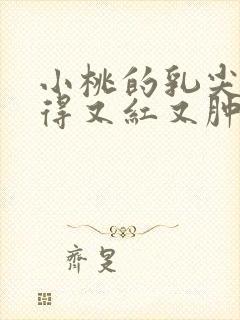 小桃的乳尖
得又紅又肿
齊是